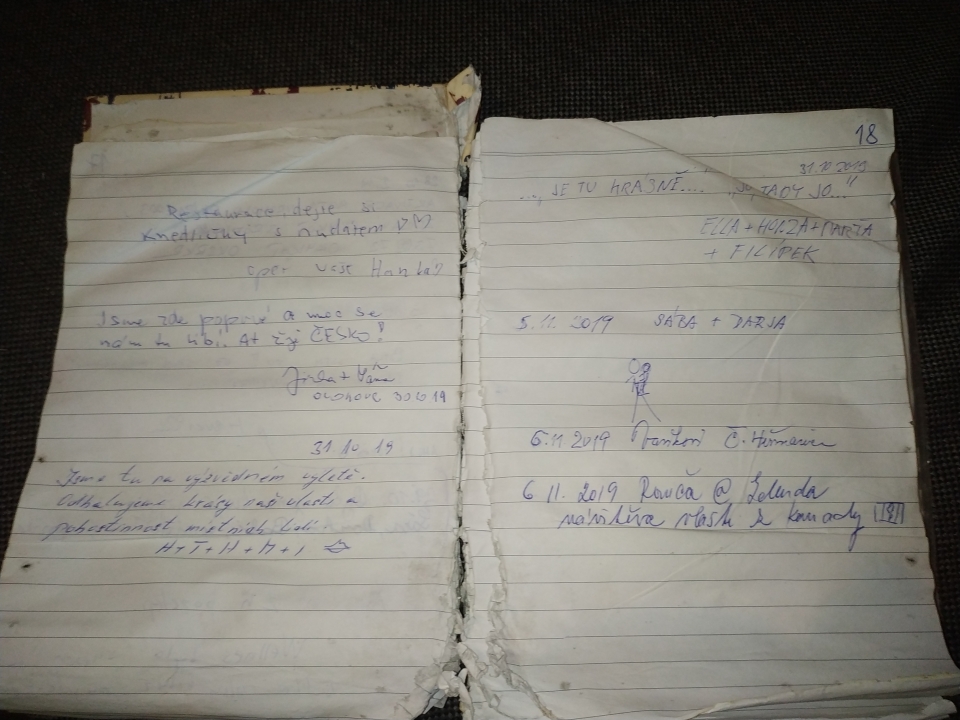 Restaurace dejte si
knedlíčky s
opět vaše Hanka
Jsme zde poprvé a moc se
nám tu líbí. Ať žije ČESKO!
Jirka +
31 10 19
Jsme tu na výzvědném výletě.
Odhalujeme krásy naší vlasti a
pohostinnost místních lidí.
H+T+H+M+J
18
31.10 2019
..., JE TU KRÁSNĚ...." "JO, TADY JO..."
ELLA + HONZA + MARŤA
+ FILÍPEK
5.11. 2019 SÁBA + DARJA
6.11 2019 Č. Heřmanice
6 11. 2019 @
návštěva vlasti z Kanady